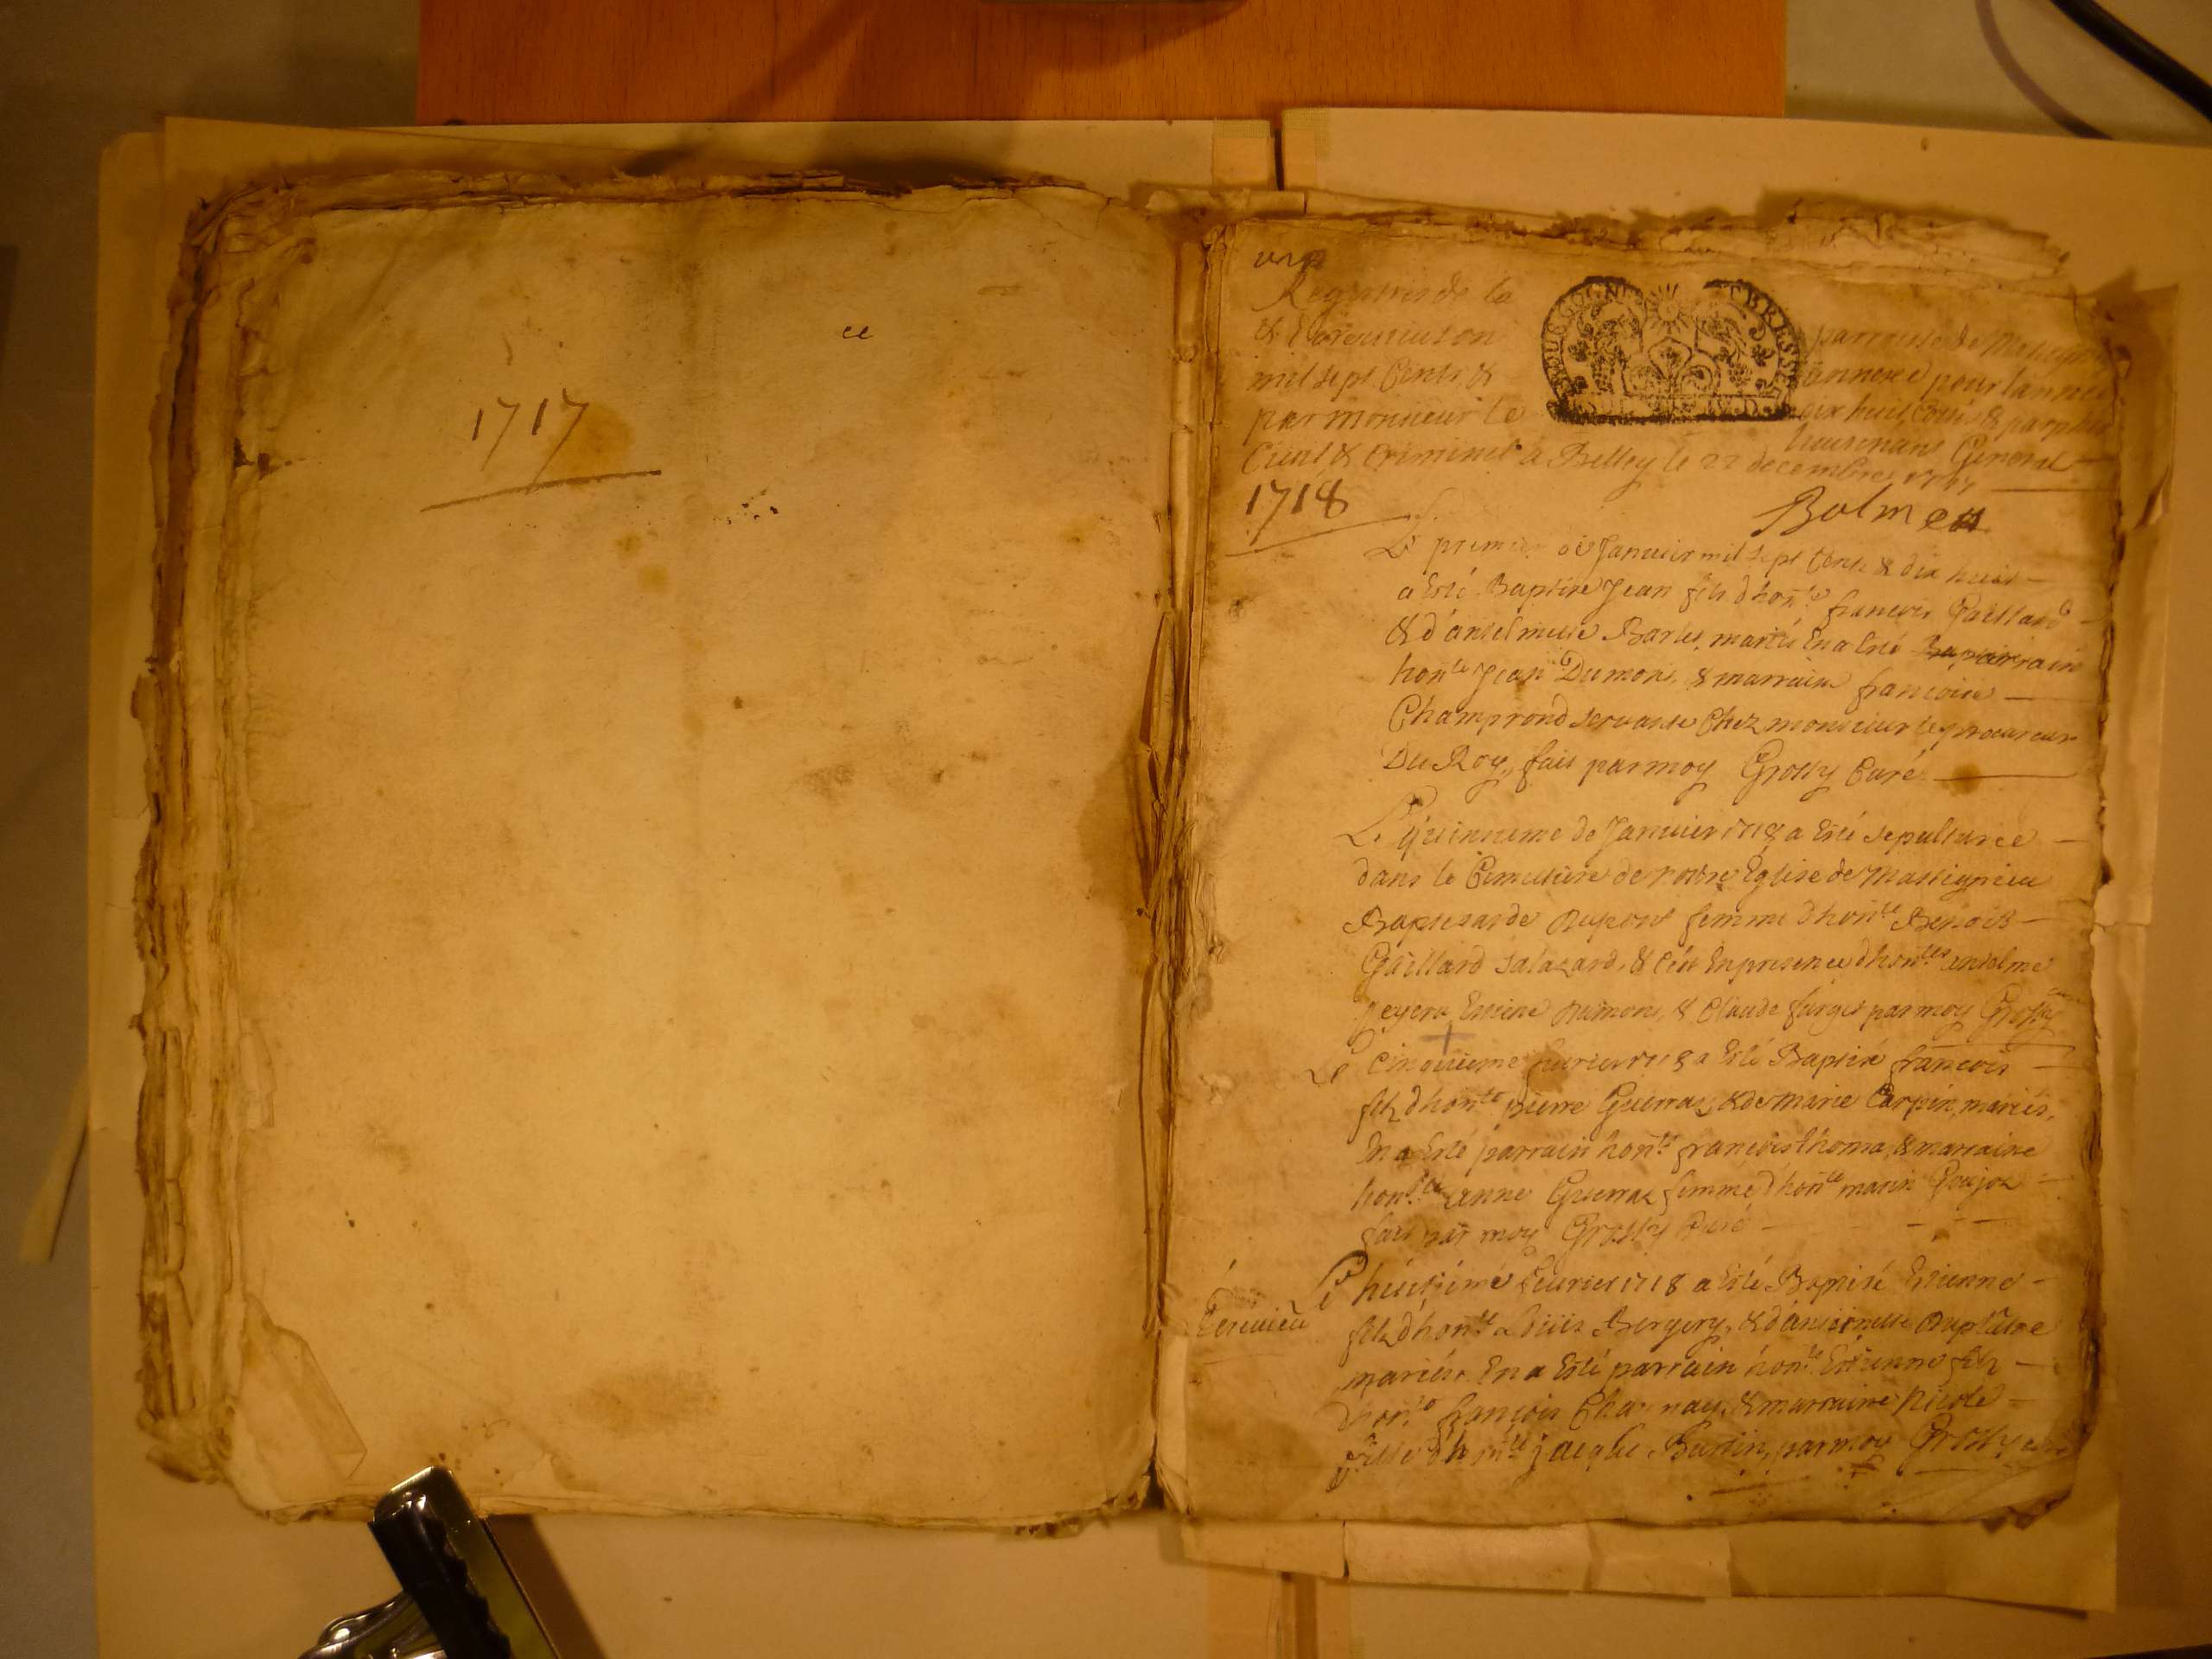 1717
Registre de la parroisse de Massignieu
mil sept Cents & dix huit, Cotté & paraphé
par monsieur le lieutenant General
Civil & Criminel a Belley le 22 decembre 1717
1718
BOURGOGNE ET BRESSE
Le premier de Janvier mil sept Cents & dix huit
a Esté Baptisé Jean fils d'hon.le françois Gaillard
& d'antelmette Barlet mariés En a Esté parrain
hon.le Jean Dumont, & marraine françoise
Champrond servante Chez monsieur le procureur
Du Roy, fait par moy Grossy Curé
Le quinzieme de Janvier 1718 a Esté sepulturée
dans le Cemetiere de nostre Eglise de Massignieu
Baptesarde Dupont femme d'hon.le Benoist
Gaillard Salazard, & c'est En presence d'hon.les antelme
Estiene Dumont, & Claude farget par moy Grossy
Le Cinquieme fevrier 1718 a Esté Baptisé françois
filz d'hon.le pierre Guerraz, & de marie Carpin mariés,
En a Esté parrain hon.le françois thoma, & marraine
hon.le anne Guerraz femme d'hon.le marin Goujon
fait par moy Grossy Curé
Le huictieme fevrier 1718 a Esté Baptisé Estienne
filz d'hon.le Louis Bergery, & d'antelmette
mariés. En a Esté parrain hon.le Estienne filz
d'hon.le françois Charnay, & marraine Nicole
fille d'hon.le Jacque Burtin, par moy Grossy curé